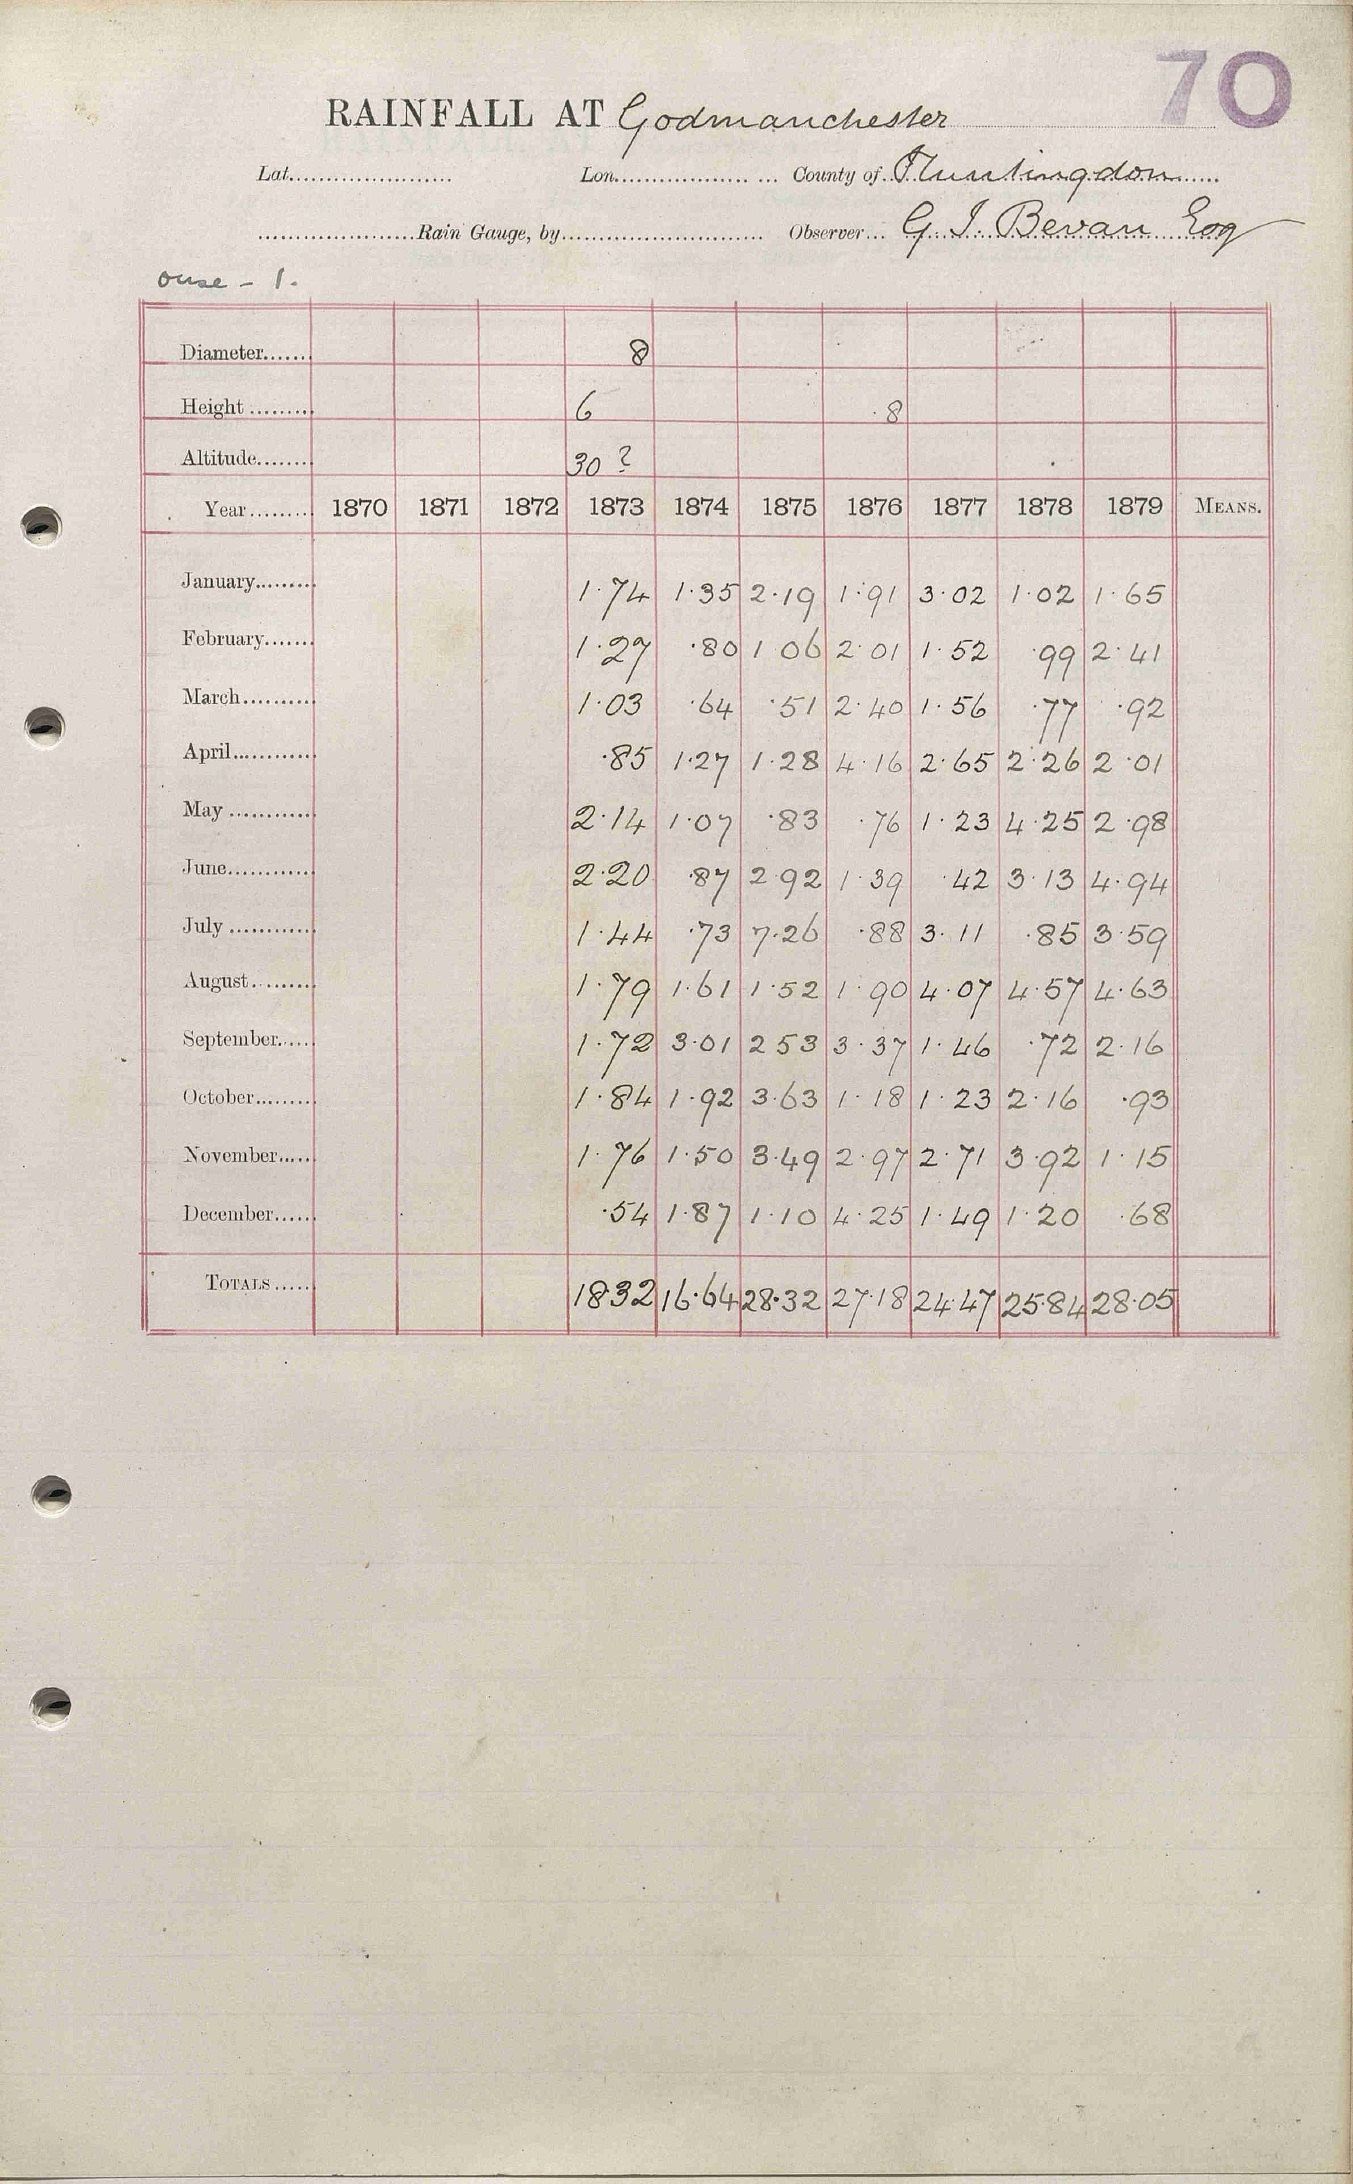 70
RAINFALL AT Godmanchester
Lat..................... Lon.................... County of Huntingdon
.....................Rain Gauge, by........................... Observer... G. I. Bevan Esq
ouse - 1.
Diameter....... 8
Height ......... 6 ·8
Altitude........ 30 ?
Year........ 1870 1871 1872 1873 1874 1875 1876 1877 1878 1879 MEANS.
January......... 1·74 1·35 2·19 1·91 3·02 1·02 1·65
February....... 1·27 ·80 1 06 2·01 1·52 ·99 2·41
March.......... 1·03 ·64 ·51 2·40 1·56 ·77 ·92
April............ ·85 1·27 1·28 4·16 2·65 2·26 2·01
May ............ 2·14 1·07 ·83 ·76 1·23 4·25 2·98
June............ 2·20 ·87 2 92 1·39 ·42 3·13 4·94
July ............ 1·44 ·73 7·26 ·88 3·11 ·85 3·59
August.......... 1·79 1·61 1·52 1·90 4·07 4·57 4·63
September...... 1·72 3·01 2 53 3·37 1·46 ·72 2·16
October......... 1·84 1·92 3·63 1·18 1·23 2·16 ·93
November...... 1·76 1·50 3·49 2·97 2·71 3·92 1·15
December...... ·54 1·87 1·10 4·25 1·49 1·20 ·68
TOTALS ..... 18·32 16·64 28·32 27·18 24·47 25·84 28·05